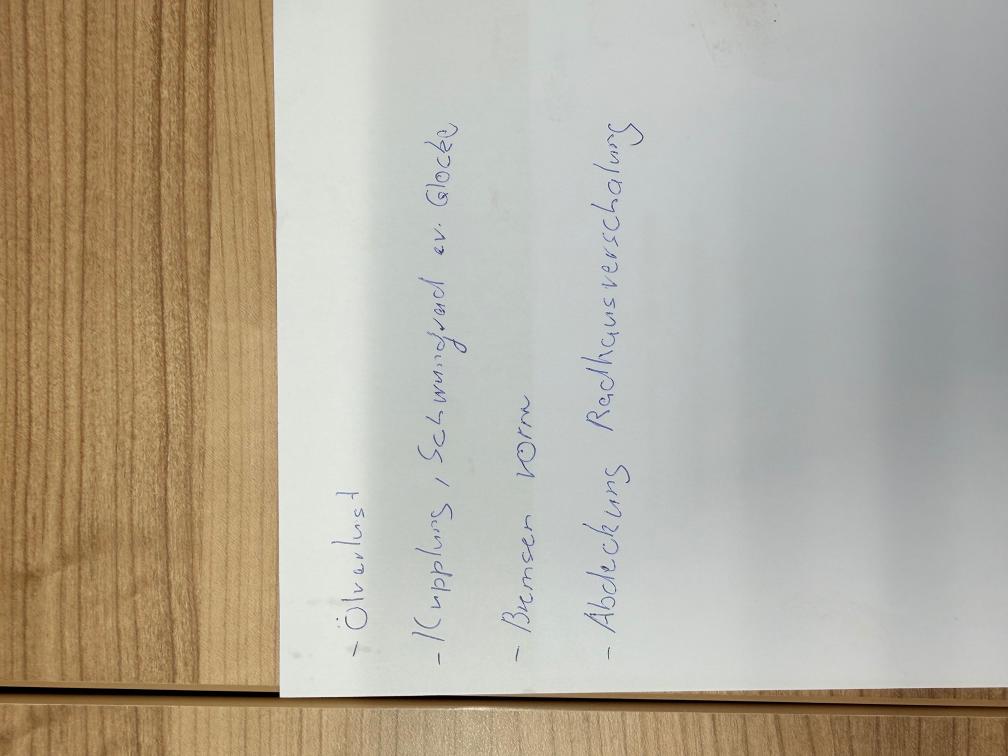 - Ölverlust
- Kupplung, Schwungrad ev. Glocke
- Bremsen vorne
- Abdeckung Radhausverschalung